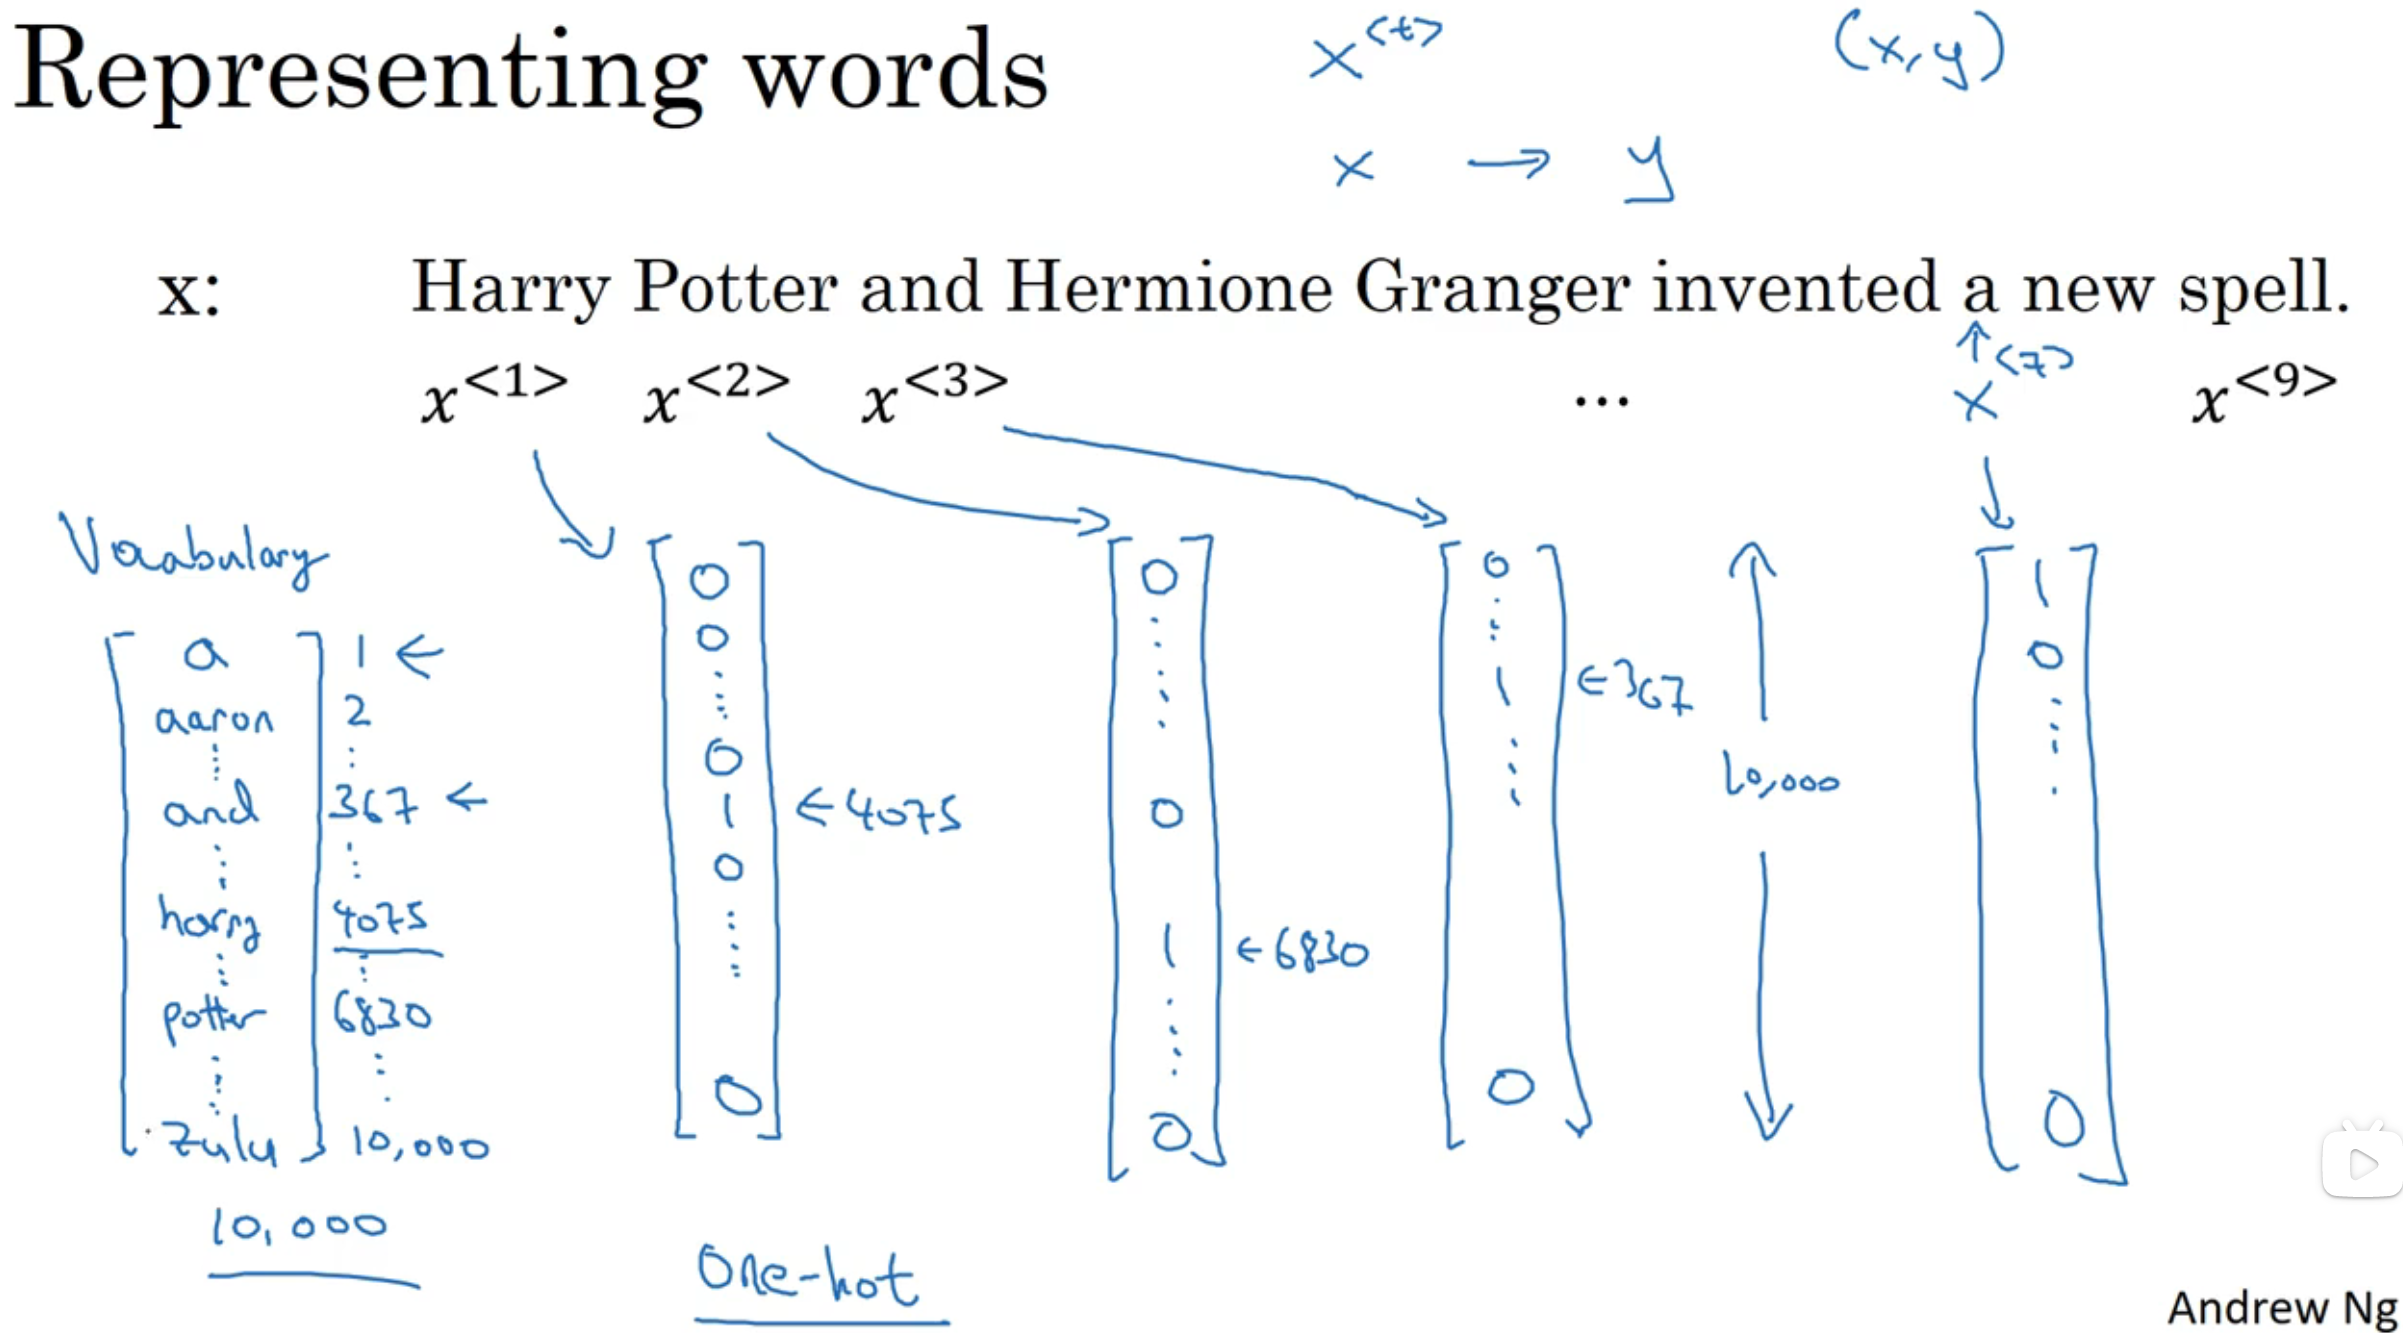 Representing words
x<t>
(x, y)
x → y
x: Harry Potter and Hermione Granger invented a new spell.
x<1> x<2> x<3> ... x<7> x<9>
Vocabulary
a 1 ←
aaron 2
and 367 ←
harry 4075
potter 6830
zulu 10,000
10,000
0
0
0
1 ← 4075
0
0
0
0
1 ← 6830
0
0
1 ← 367
0
10,000
1
0
0
One-hot
Andrew Ng